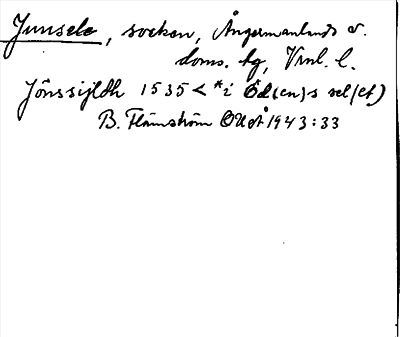 Junsele, socken, Ångermanlands v.
doms. tg, Vnl. l.
Jönssijldh 1535 < *i Öd(en)s sel(et)
B. Flemström OUÅ 1943:33